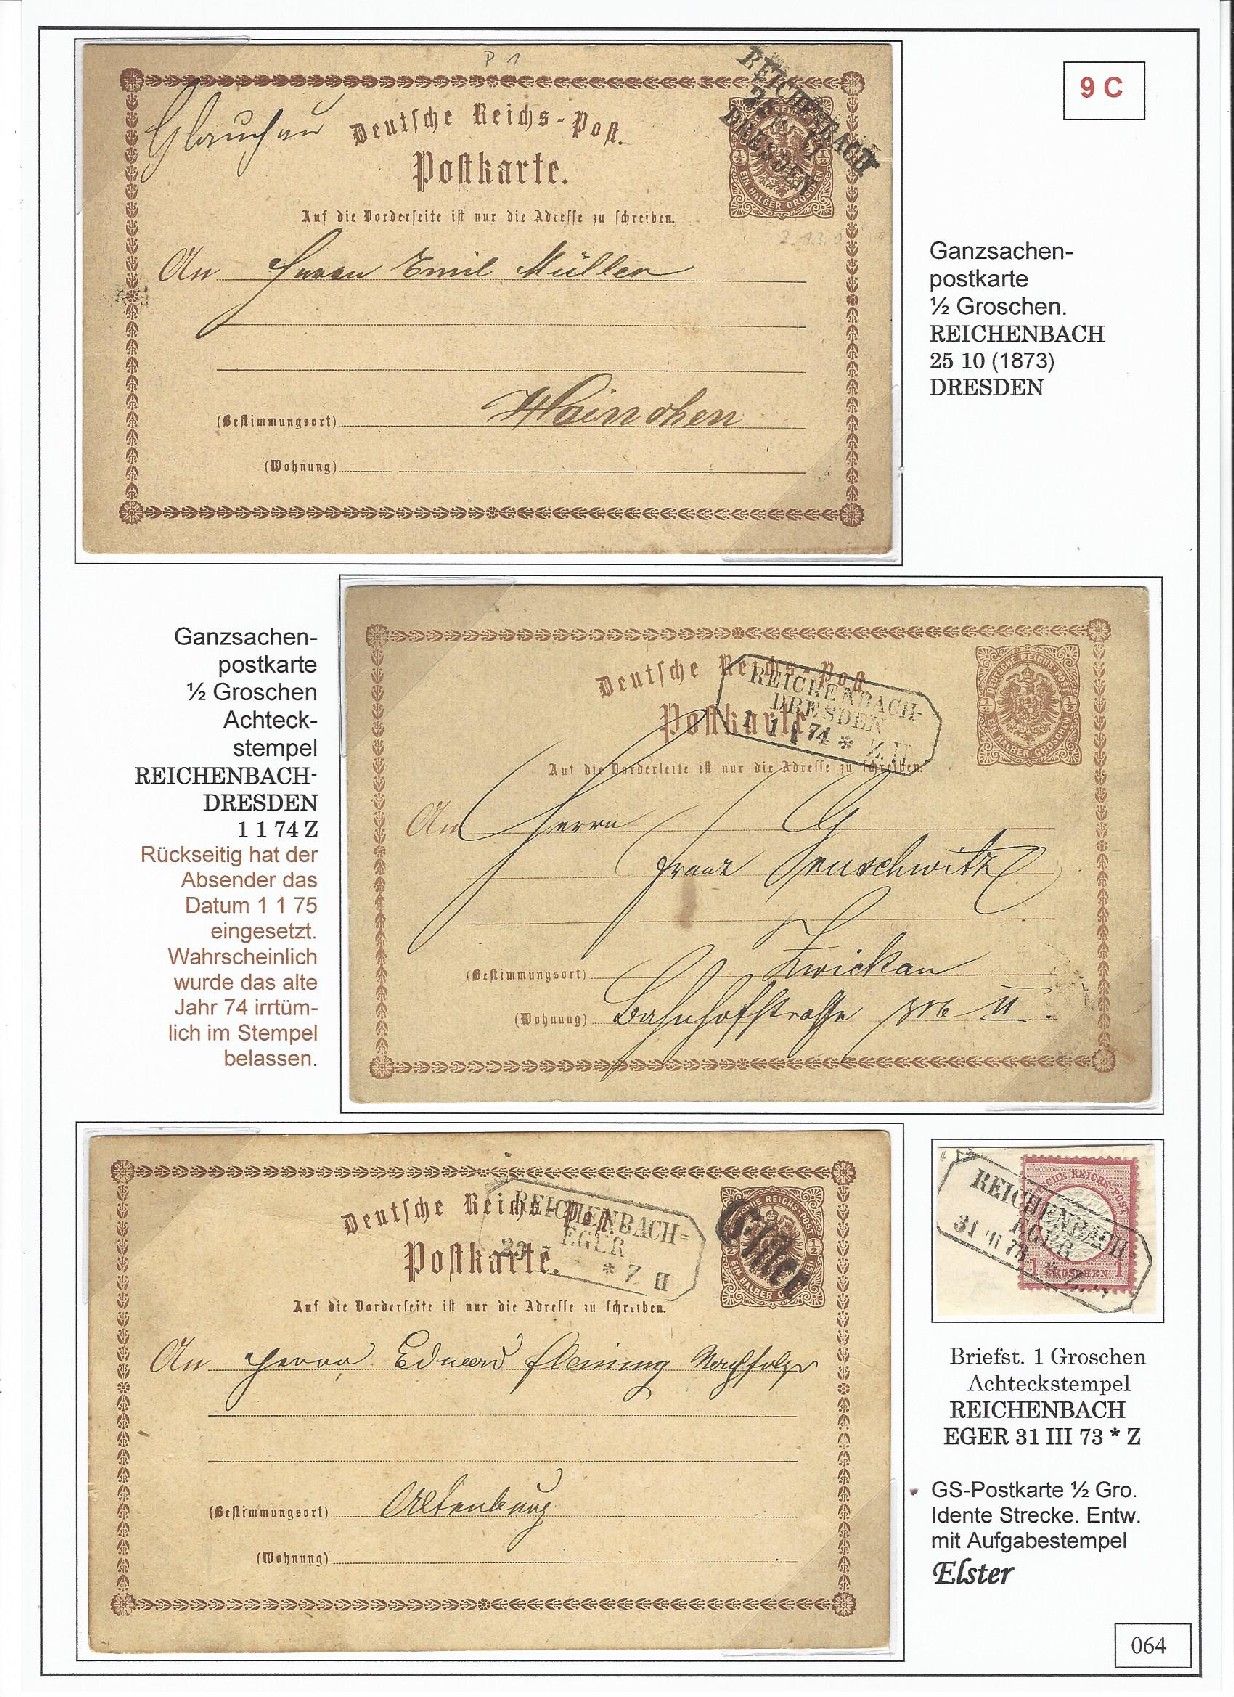 P 1
9 C
Glauchau
Deutsche Reichs-Post.
Postkarte.
Auf die Vorderseite ist nur die Adresse zu schreiben.
REICHENBACH
DRESDEN
EIN HALBER GROSCHEN
An Herrn Emil Müller
(Bestimmungsort) Hainichen
(Wohnung)
Ganzsachen-
postkarte
½ Groschen.
REICHENBACH
25 10 (1873)
DRESDEN
Ganzsachen-
postkarte
½ Groschen
Achteck-
stempel
REICHENBACH-
DRESDEN
1 1 74 Z
Rückseitig hat der
Absender das
Datum 1 1 75
eingesetzt.
Wahrscheinlich
wurde das alte
Jahr 74 irrtüm-
lich im Stempel
belassen.
Deutsche Reichs-Post
Postkarte.
REICHENBACH-
DRESDEN
1 1 74 * Z. II
Auf die Vorderseite ist nur die Adresse zu schreiben.
An Herrn
Franz
(Bestimmungsort) Zwickau
(Wohnung) Bahnhofstrasse
Deutsche Reichs-Post
Postkarte.
REICHENBACH-
EGER
* Z II
Elster
Auf die Vorderseite ist nur die Adresse zu schreiben.
An Herrn Eduard Nachfolger
(Bestimmungsort) Altenburg
(Wohnung)
REICHENBACH
EGER
31 III 73 * Z
1 GROSCHEN 1
Briefst. 1 Groschen
Achteckstempel
REICHENBACH
EGER 31 III 73 * Z
GS-Postkarte ½ Gro.
Idente Strecke. Entw.
mit Aufgabestempel
Elster
064